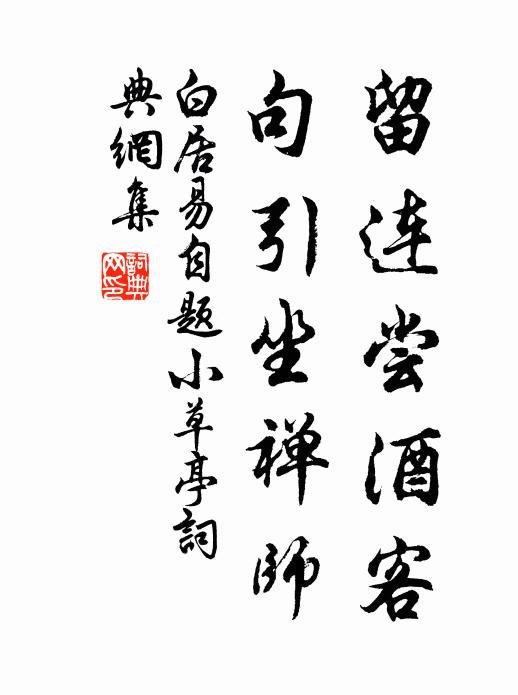 留连尝酒客
句引坐禅师
白居易自题小草亭詞
典網集
詞典
网印